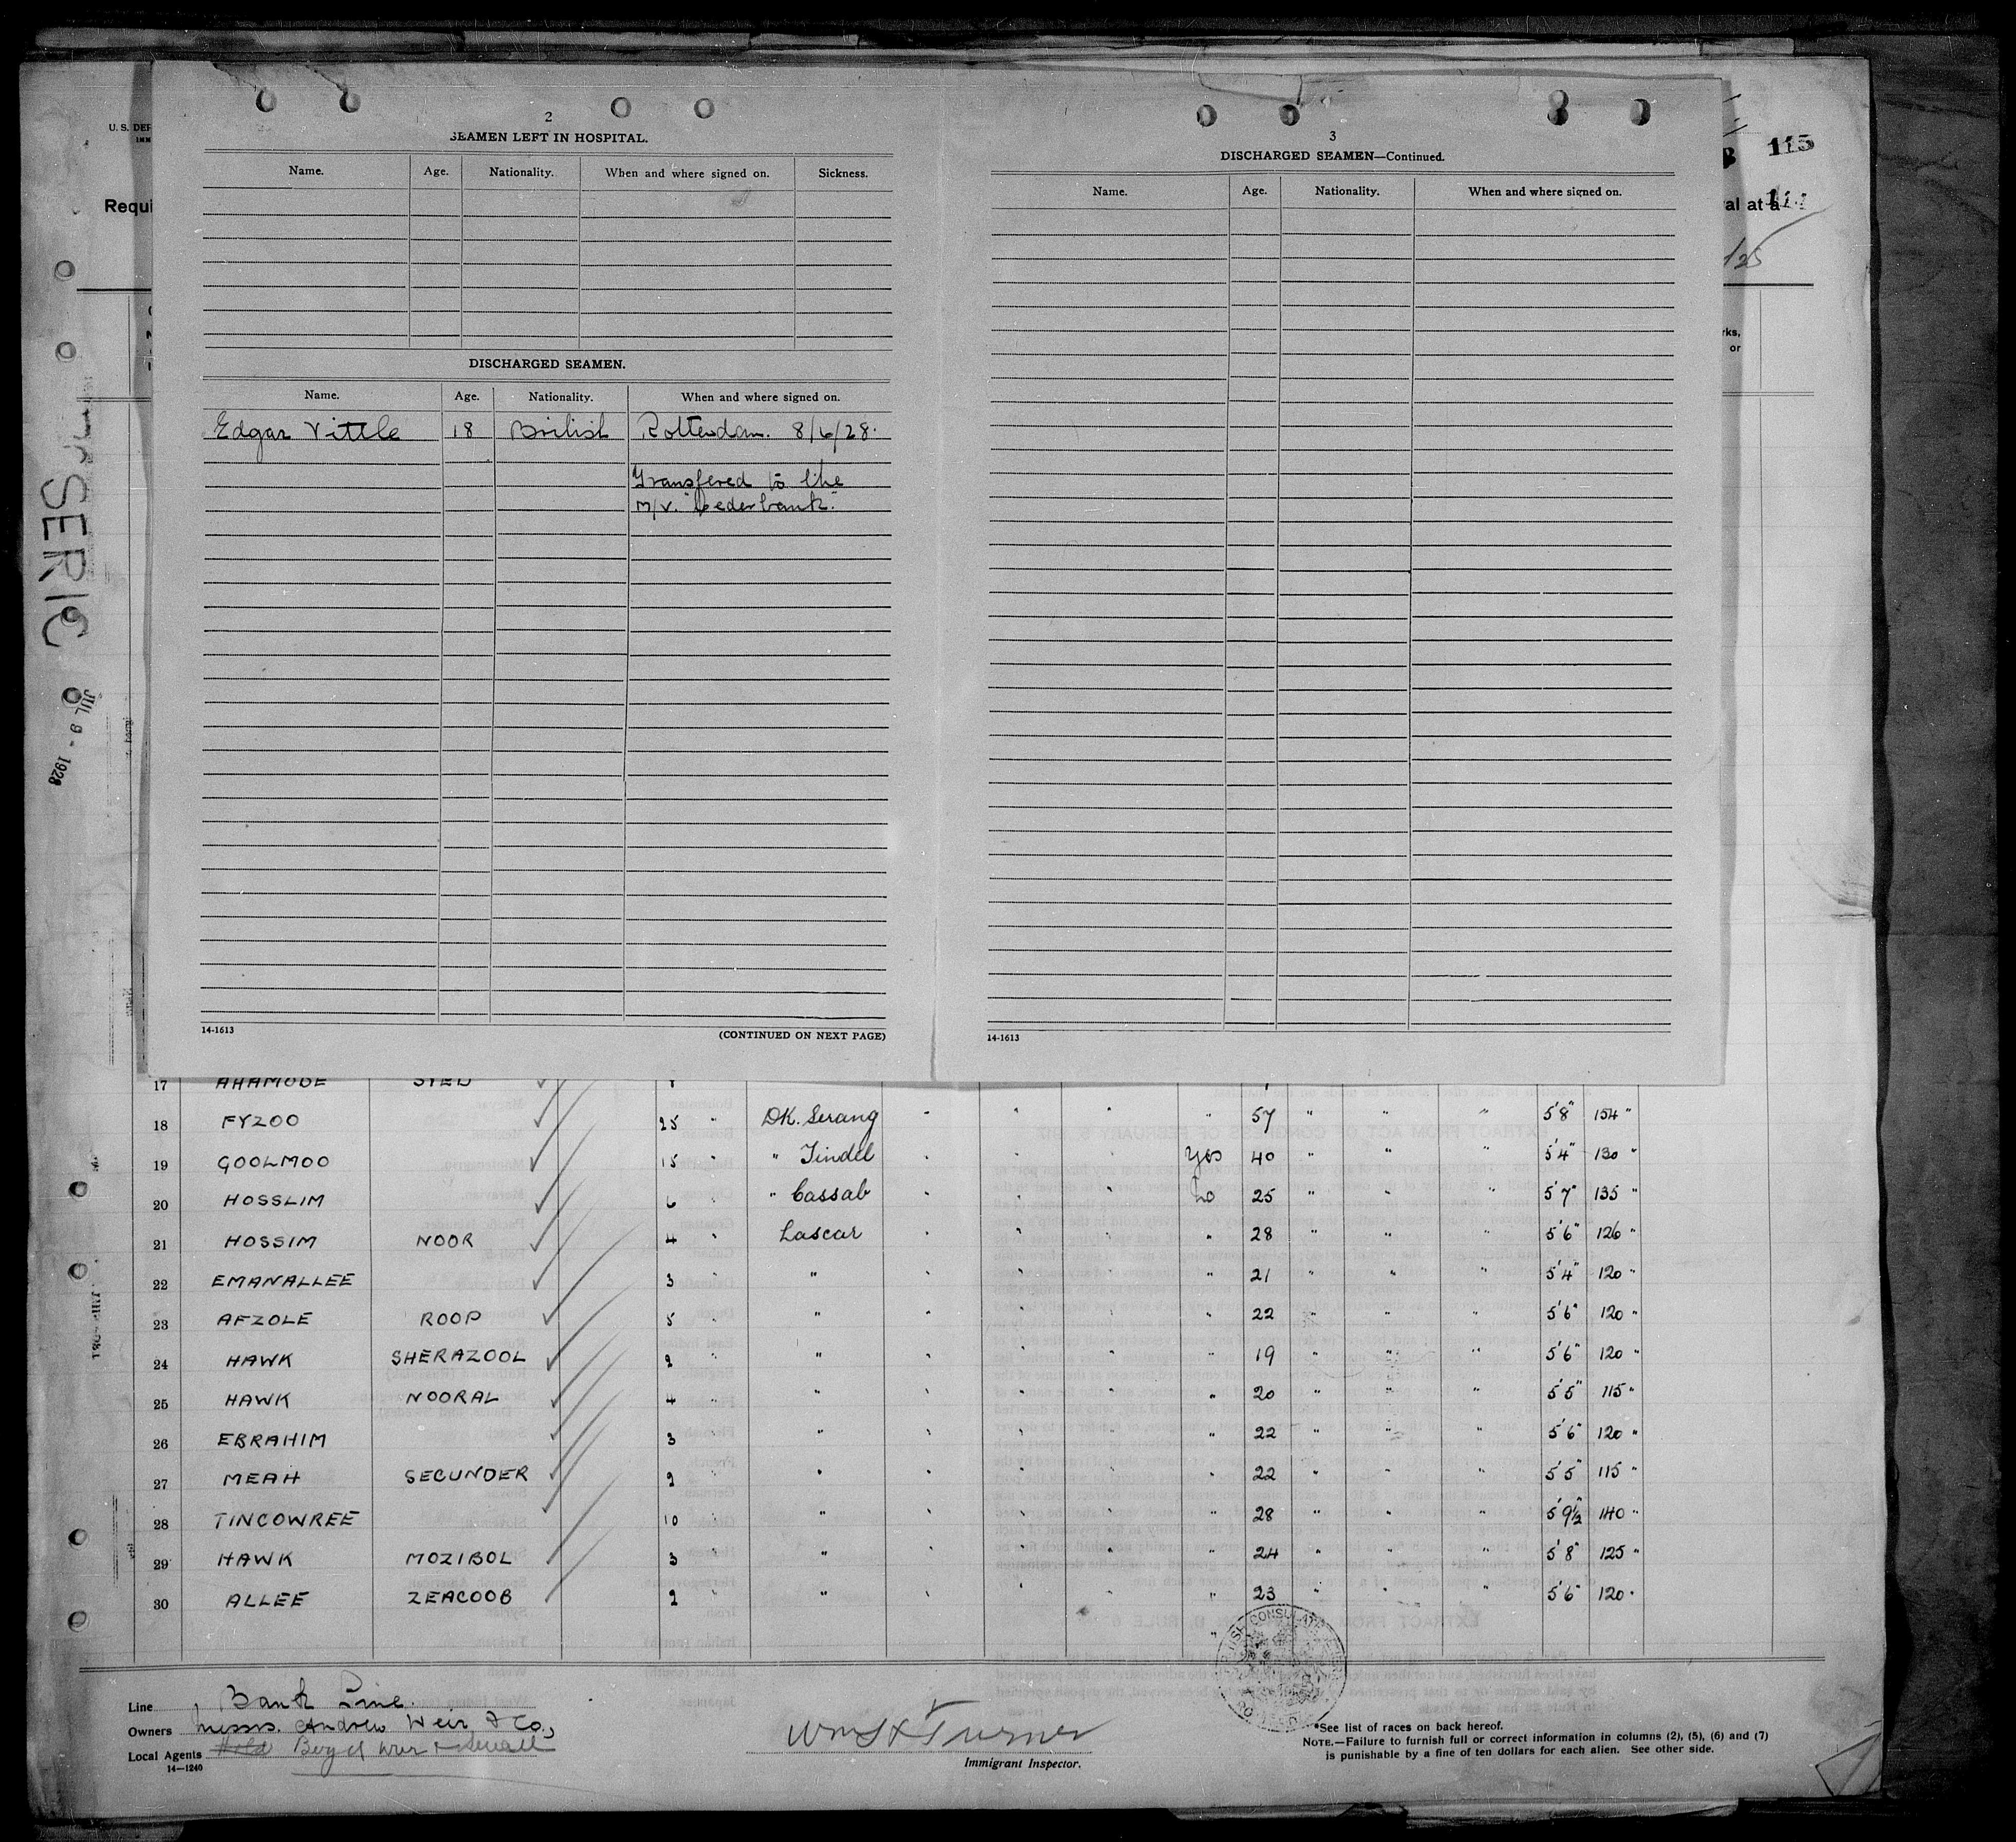 U. S. DEP
IMM
Requi
2
SEAMEN LEFT IN HOSPITAL.
Name. Age. Nationality. When and where signed on. Sickness.
DISCHARGED SEAMEN.
Name. Age. Nationality. When and where signed on.
Edgar Vittle 18 British Rotterdam. 8/6/28.
Transfered to the
m/v.
14-1613 (CONTINUED ON NEXT PAGE)
3
DISCHARGED SEAMEN—Continued.
Name. Age. Nationality. When and where signed on.
14-1613
115
val at a
rks,
or
SERIC
JUL 9 - 1928
17 AHAMODE SYED
18 FYZOO 25 " DK. Serang " " " " 57 " " " 5'8" 154 "
19 GOOLMOO 15 " " Tindel " " " Yes 40 " " " 5'4" 130 "
20 HOSSLIM 6 " " Cassab " " " No 25 " " " 5'7" 135 "
21 HOSSIM NOOR 4 " Lascar " " " " 28 " " " 5'6" 126 "
22 EMANALLEE 3 " " " " " " 21 " " " 5'4" 120 "
23 AFZOLE ROOP 5 " " " " " " 22 " " " 5'6" 120 "
24 HAWK SHERAZOOL 2 " " " " " " 19 " " " 5'6" 120 "
25 HAWK NOORAL 4 " " " " " " 20 " " " 5'5" 115 "
26 EBRAHIM 3 " " " " " " 22 " " " 5'6" 120 "
27 MEAH SECUNDER 2 " " " " " " 22 " " " 5'5" 115 "
28 TINCOWREE 10 " " " " " " 28 " " " 5'9½" 140 "
29 HAWK MOZIBOL 3 " " " " " " 24 " " " 5'8" 125 "
30 ALLEE ZEACOOB 2 " " " " " " 23 " " " 5'6" 120 "
Line Bank Line.
Owners Messrs. Andrew Weir & Co.,
Local Agents Boyd Weir & Sewall
14—1240
Wm H Turner
Immigrant Inspector.
*See list of races on back hereof.
NOTE.—Failure to furnish full or correct information in columns (2), (5), (6) and (7)
is punishable by a fine of ten dollars for each alien. See other side.